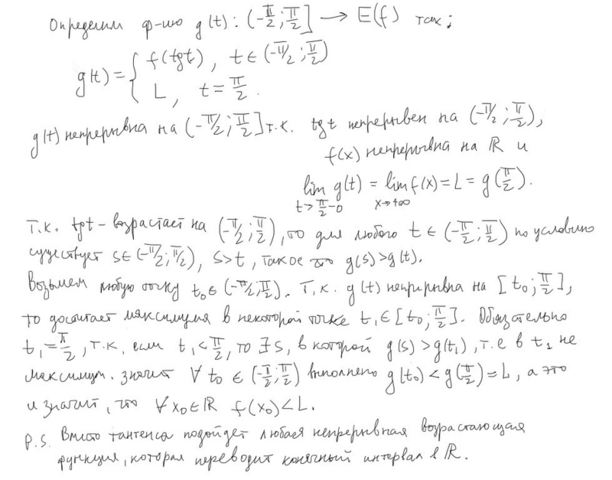 Определим ф-ию g(t): (-π/2; π/2] → E(f) так:
g(t) = { f(tgt), t∈(-π/2; π/2)
L, t = π/2.
g(t) непрерывна на (-π/2; π/2] т.к. tgt непрерывен на (-π/2; π/2),
f(x) непрерывна на ℝ и
lim g(t) = lim f(x) = L = g(π/2).
t→π/2-0 x→+∞
Т.к. tgt - возрастает на (-π/2; π/2), то для любого t∈(-π/2; π/2) по условию
существует s∈(-π/2; π/2), s>t, такое что g(s)>g(t).
Возьмем любую точку t₀∈(-π/2; π/2). Т.к. g(t) непрерывна на [t₀; π/2],
то достигает максимума в некоторой точке t₁∈[t₀; π/2]. Обязательно
t₁=π/2, т.к. если t₁<π/2, то ∃s, в которой g(s)>g(t₁), т.е в t₁ не
максимум. значит ∀t₀∈(-π/2; π/2) выполнено g(t₀)<g(π/2)=L, а это
и значит, что ∀x₀∈ℝ f(x₀)<L.
P.S. Вместо тангенса подойдет любая непрерывная возрастающая
функция, которая переводит конечный интервал в ℝ.